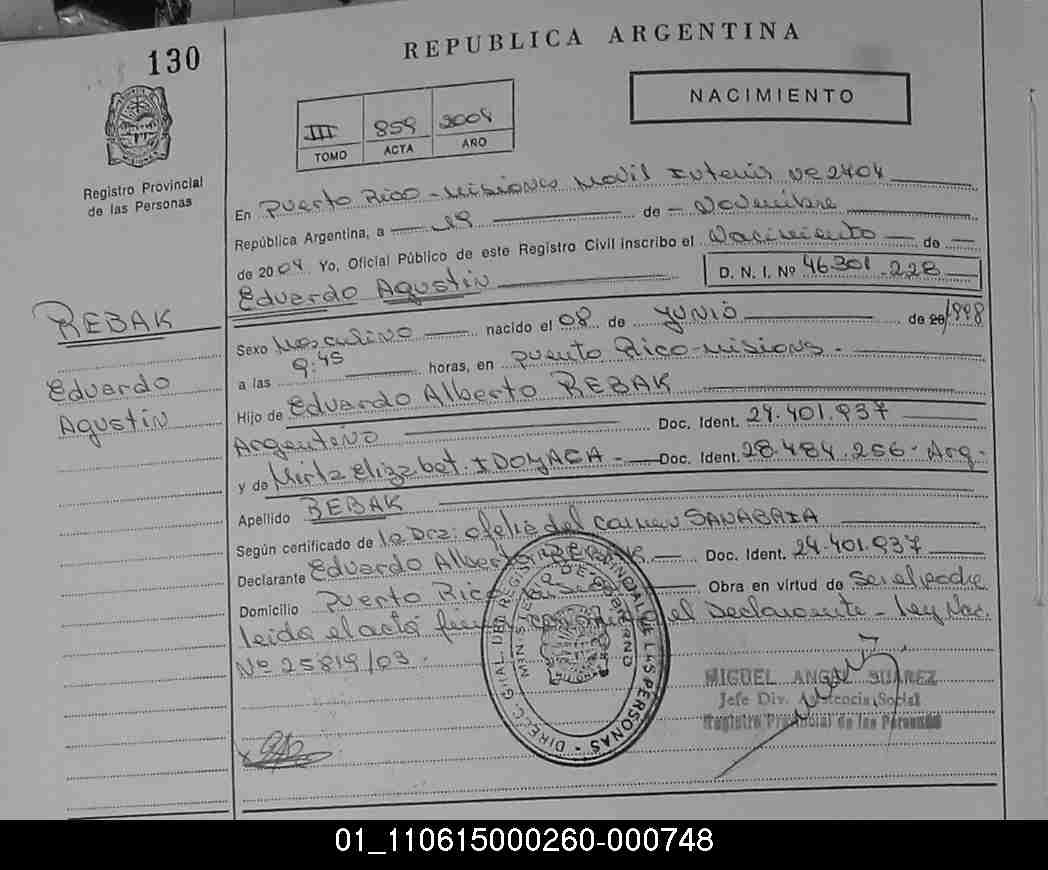 130
REPUBLICA ARGENTINA
NACIMIENTO
III 859 2004
TOMO ACTA AÑO
Registro Provincial
de las Personas
En Puerto Rico - Misiones Movil Intenis Nº 2404
República Argentina, a 19 de - Noviembre
de 2004 Yo, Oficial Público de este Registro Civil inscribo el Nacimiento de
Eduardo Agustin D. N. I. Nº 46.301.228
REBAK
Eduardo
Agustin
Sexo Masculino nacido el 08 de JUNIO de 20/1998
a las 9:45 horas, en Puerto Rico - misions -
Hijo de Eduardo Alberto REBAK
Argentino Doc. Ident. 24.401.937
y de Mirta Elizabet. IDOYAGA - Doc. Ident. 28.484.256 - Arg -
Apellido REBAK
Según certificado de la Dra: ofelia del Carmen SANABRIA
Declarante Eduardo Alberto REBAK. Doc. Ident. 24.401.937
Domicilio Puerto Rico Obra en virtud de Ser el padre
leida el acta el Declarante - Ley Nac.
Nº 25819/03 -
DIREC. GRAL. DEL REGISTRO PROVINCIAL DE LAS PERSONAS
MINISTERIO DE GOBIERNO
MIGUEL ANGEL SUAREZ
Jefe Div. Asistencia Social
Registro Provincial de las Personas
01_110615000260-000748